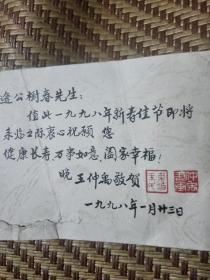 逸公桐春先生：
值此一九九八年新春佳节即将
来临之际衷心祝颂 您
健康长寿、万事如意、阖家幸福！
晚 王仲禹敬贺
一九九八年一月廿三日